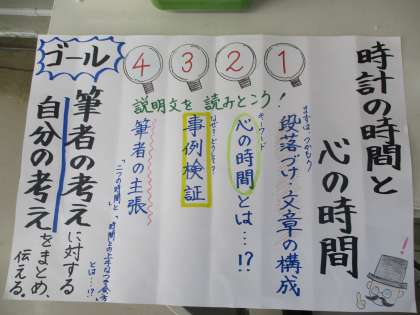 時計の時間と
心の時間
説明文を読みとこう！
1
まずは、つかもう
段落づけ・文章の構成
2
キーワード
心の時間とは…!?
3
なぜ？どうする？
事例検証
4
筆者の主張
「二つの時間」と「時間との上手なつき合い方」とは…!?
ゴール
筆者の考えに対する
自分の考えをまとめ、
伝える。
!